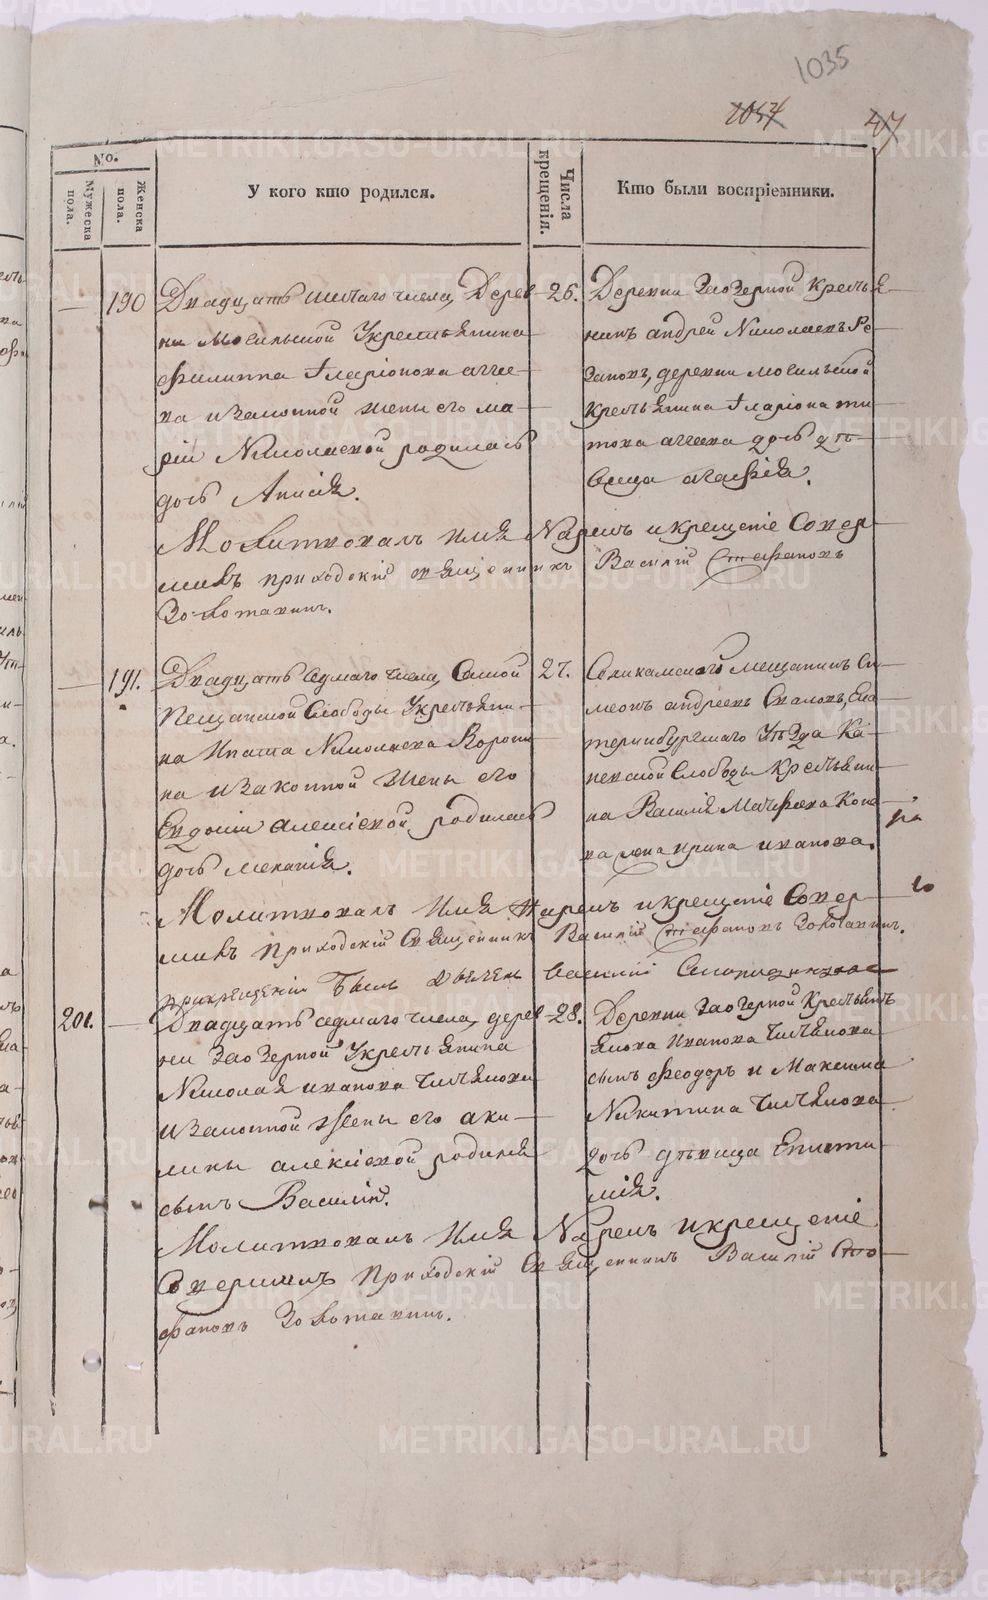 1035
1054
47
No.
Мужеска пола.
Женска пола.
У кого кто родился.
Числа крещенія.
Кто были воспріемники.
190
Двадцать шестаго числа, Дерев
ни Могильской Укрестьянина
Филиппа Иларіонова
ва изаконной жены его Ма
ріи Николаевой родилась
дочь Анисія.
26.
Деревни Заозерной Крестья
нинъ андрей Николаевъ Ре
зановъ, деревни могильской
Крестьянина Иларіона ти
това дочь дѣ
вица агафія.
Молитвовалъ имя Нарекъ икрещеніе Совер
шилъ приходскій священникъ Василій Стефановъ
Золотавинъ.
191.
Двадцать седмаго числа, Самой
Пещанской Слободы Укрестьяни
на Ипата Николаева Ворони
на изаконной жены его
Евдокіи алексіевой родилась
дочь меланія.
27.
Соликамскаго мещанинъ Си
меонъ андреевъ Ска­ловъ, Ека
теринбургскаго Уѣзда Ка
менской Слободы Крестьяни
на Василія Матфеева
ра
ва жена ирина иванова.
Молитвовалъ Имя Нарекъ икрещеніе Совер
го
шилъ Приходскій Священникъ Василій Стефановъ Золотавинъ.
прикрещеніи былъ Василій
201.
Двадцать седмаго числа, дерев
ни Заозерной Укрестьянина
Николая иванова
изаконной жены его аки
лины алексіевой родился
сынъ Василій.
28.
Деревни Заозерной Крестьянъ
якова Иванова
сынъ Феодоръ и Максима
Никитина
дочь дѣвица Еписти
мія.
Молитвовалъ Имя Нарекъ икрещеніе
Совершилъ Приходскій Священникъ Василій Сте
фановъ Золотавинъ.
METRIKI.GASO-URAL.RU